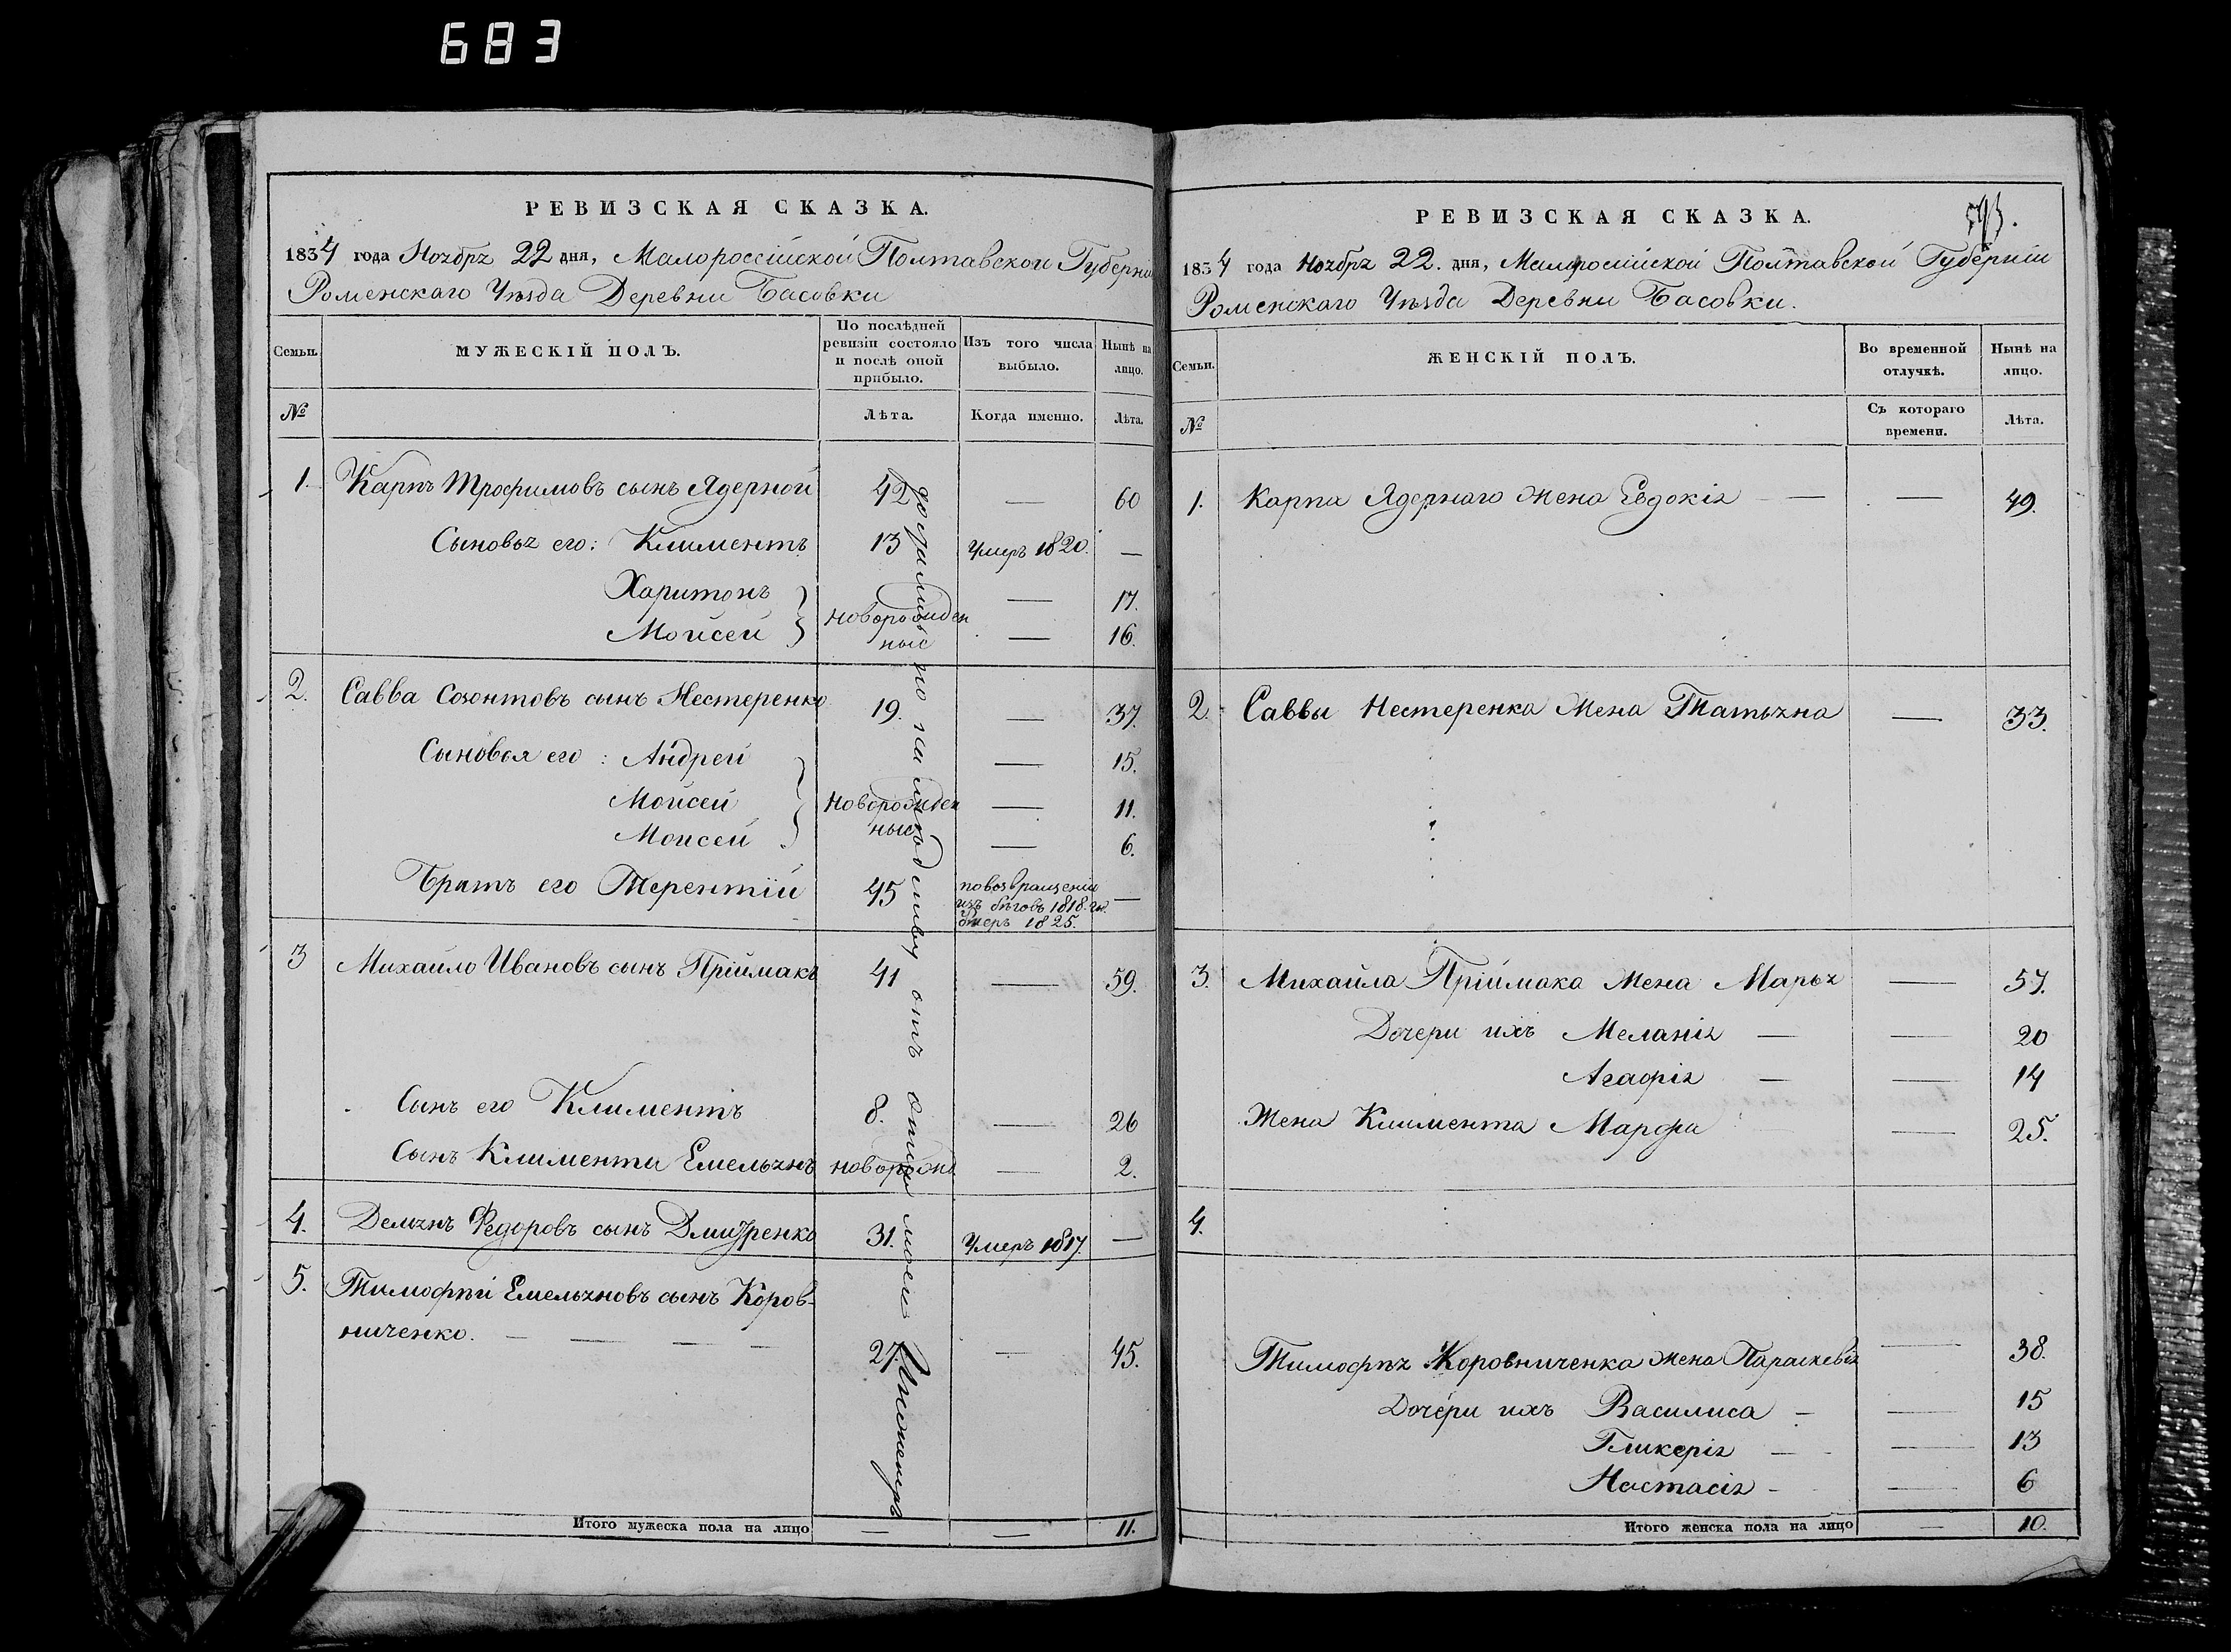 683
РЕВИЗСКАЯ СКАЗКА.
1834 года Ноября 22 дня, Малороссійской Полтавской Губерніи
Роменскаго Уѣзда Деревни Басовки
Семьи.
МУЖЕСКІЙ ПОЛЪ.
По послѣдней
ревизіи состояло
и послѣ оной
прибыло.
Изъ того числа
выбыло.
Нынѣ на
лицо.
№
Лѣта.
Когда именно.
Лѣта.
1. Карпъ Трофимовъ сынъ Ядерной 42 — 60
Сыновья его: Климентъ 13 Умеръ 1820. —
Харитонъ — 17.
Новорожден
Мойсей — 16.
ные
2. Савва Созонтовъ сынъ Нестеренко 19. — 37.
Сыновья его: Андрей — 15.
Мойсей Новорожден — 11.
ные
Моисей — 6.
Братъ его Терентій 45 по возвращеніи —
изъ бѣговъ 1818. го.
умеръ 1825.
3 Михайло Ивановъ сынъ Пріймакъ 41 — 59.
Сынъ его Климентъ 8. — 26
Сынъ Климента Емельянъ новорожд. — 2.
4. Демянъ Федоровъ сынъ Дмитренко 31. Умеръ 1817. —
5. Тимофѣй Емельяновъ сынъ Коров-
ниченко. — — — — 27. — 45.
Итого мужеска пола на лицо — — 11.
РЕВИЗСКАЯ СКАЗКА.
1834 года Ноября 22. дня, Малоросійской Полтавской Губерніи
Роменскаго Уѣзда Деревни Басовки.
Семьи.
ЖЕНСКІЙ ПОЛЪ.
Во временной
отлучкѣ.
Нынѣ на
лицо.
№
Съ котораго
времени.
Лѣта.
1. Карпа Ядернаго жена Евдокія — — 49.
2. Саввы Нестеренка жена Татьяна — 33.
3. Михайла Пріймака жена Марья — 57.
Дочери ихъ Меланія — — 20
Агафія — — 14
Жена Климента Марфа — 25.
4.
Тимофѣя Коровниченка жена Параскевія — 38.
Дочери ихъ Василиса — — 15
Гликерія — — 13
Настасія — — 6
Итого женска пола на лицо — 10.